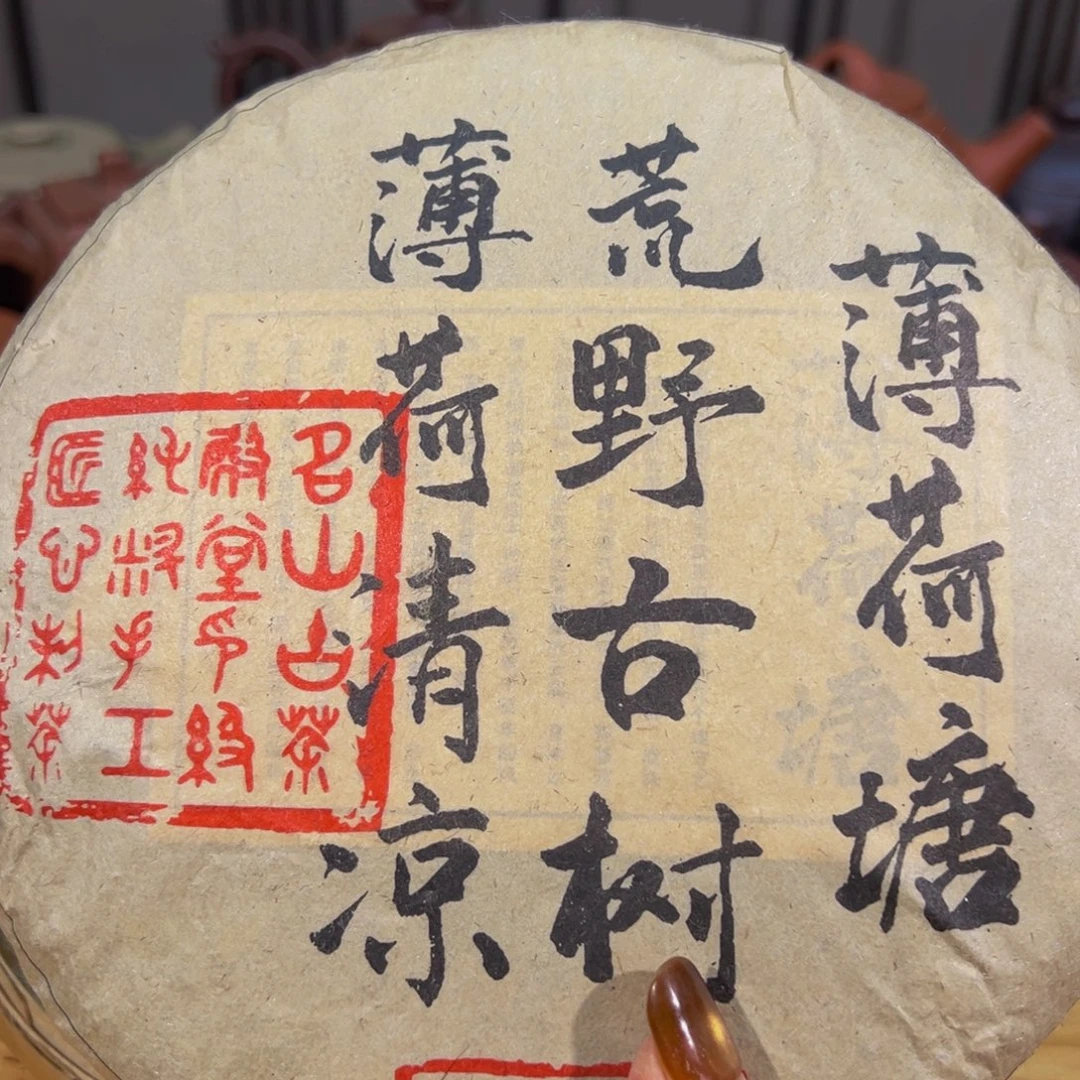 薄荷塘
荒野古树
薄荷清凉
名山古茶
堂印级
纯料手工
匠心制茶